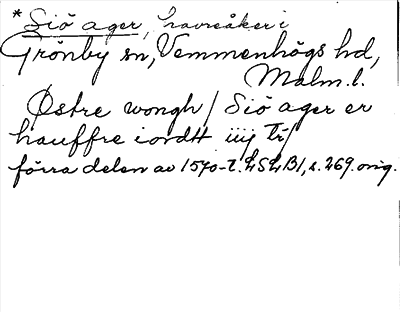 * Siö ager, havreåker i
Grönby sn, Vemmenhögs hd,
Malm. l.
Østre wongh / Siö ager er
hauffre iordtt iiij tr /
förra delen av 1570-t. LSLB1, s. 269. orig.